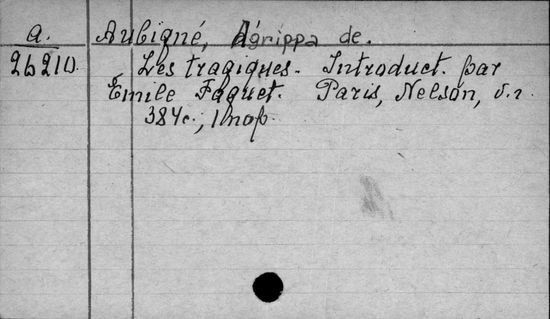 a. Aubigné, Agrippa de.
26210. Les tragiques. Introduct. par
Émile Faguet. Paris, Nelson, s.г.
384с., 1 пор.